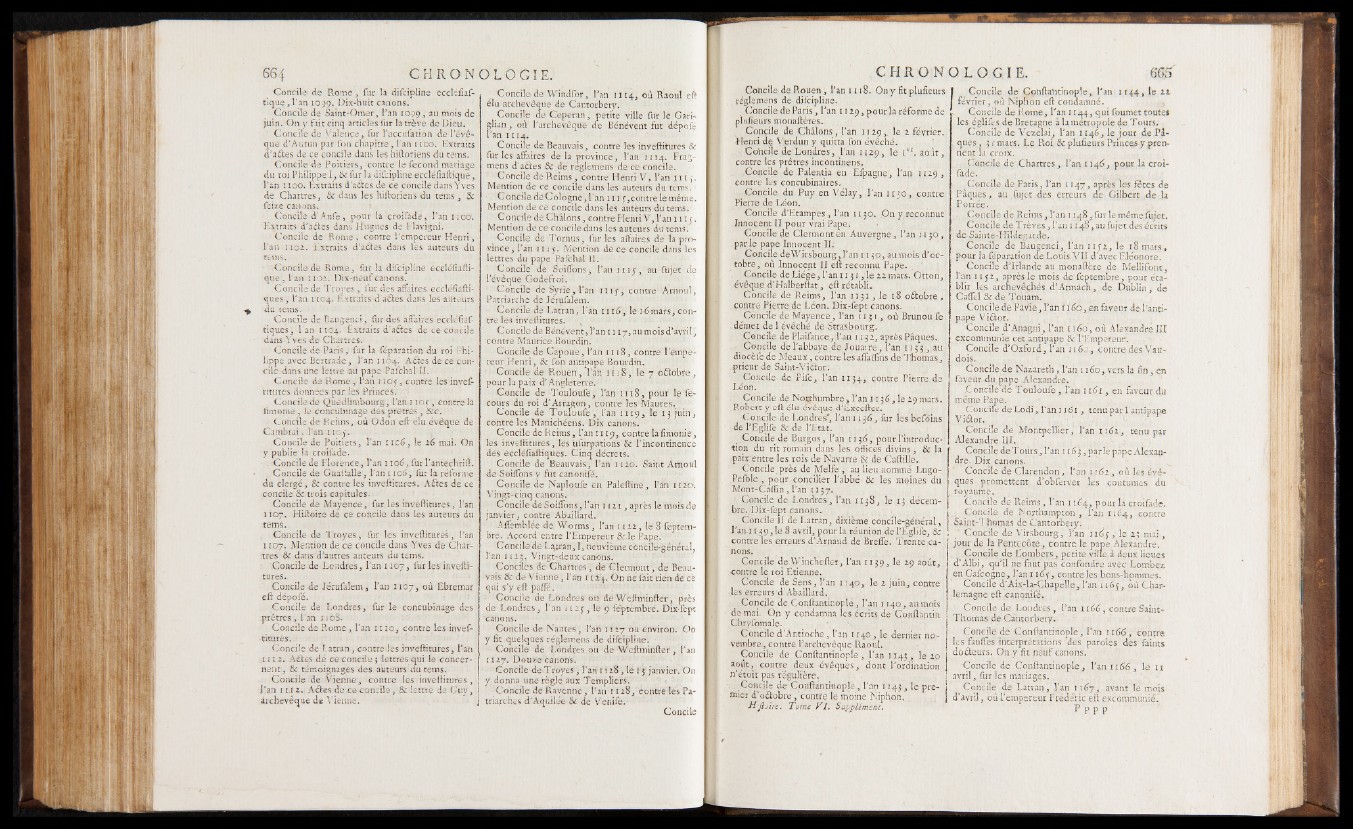 664 CHRONOLOGIE.
Concile de Rome, ſur la diſcipline eccléſiaſ-
tique, l'an 1099. Dix-huit canons.
Concile de Saint-Omer, l'an 1099, au mois de
juin. On y fait cinq articles ſur la trève de Dieu.
Concile de Valence, ſur l'accuſation de l'évê-
que d'Autun par ſon chapitre, l'an 1100. Extraits
d'actes de ce concile dans les hiſtoriens du tems.
Concile de Poitiers, contre le ſecond mariage
du roi Philippe I, & ſur la diſcipline eccléſiaſtique,
l'an 1100. Extraits d'actes de ce concile dans Yves
de Chartres, & dans les hiſtoriens du tems, &
ſeize canons.
Concile d'Anſe, pour la croiſade, l'an 1100.
Extraits d'actes dans Hugues de Flavigni.
Concile de Rome, contre l'empereur Henri,
l'an 1102. Extraits d'actes dans les auteurs du
tems.
Concile de Rome, ſur la diſcipline eccléſiaſti-
que, l'an 1102. Dix-neuf canons.
Concile de Troyes, ſur des affaires eccléſiaſti-
ques, l'an 1104. Extraits d'actes dans les auteurs
du tems.
Concile de Baugenci, ſur des affaires eccléſiaſ-
tiques, l'an 1104. Extraits d'actes de ce concile
dans Yves de Chartres.
Concile de Paris, ſur la ſéparation du roi Phi-
lippe avec Bertrade, l'an 1104. Actes de ce con-
cile dans une lettre au pape Paſchal II.
Concile de Rome, l'an 1105, contre les inveſ-
titures données par les Princes.
Concile de Quedlimbourg, l'an 1105, contre la
ſimonie, le concubinage des prêtres, &c.
Concile de Reims, où Odon eſt élu évêque de
Cambrai, l'an 1105.
Concile de Poitiers, l'an 1106, le 26 mai. On
y publie la croiſade.
Concile de Florence, l'an 1106, ſur l'antechriſt.
Concile de Guaſtalle, l'an 1106, ſur la réforme
du clergé, & contre les inveſtitures. Actes de ce
concile & trois capitules.
Concile de Mayence, ſur les inveſtitures, l'an
1107. Hiſtoire de ce concile dans les auteurs du
tems.
Concile de Troyes, ſur les inveſtitures, l'an
1107. Mention de ce concile dans Yves de Char-
tres & dans d'autres auteurs du tems.
Concile de Londres, l'an 1107, ſur les inveſti-
tures.
Concile de Jéruſalem, l'an 1107, où Ebremar
eſt dépoſé.
Concile de Londres, ſur le concubinage des
prêtres, l'an 1108.
Concile de Rome, l'an 1110, contre les inveſ-
titures.
Concile de Latran, contre les inveſtitures, l'an
1112. Actes de ce concile; lettres qui le concer-
nent, & témoignages des auteurs du tems.
Concile de Vienne, contre les inveſtitures,
l'an 1112. Actes de ce concile, & lettre de Guy,
archevêque de Vienne.
Concile de Windſor, l'an 1114, où Raoul eſt
élu archevêque de Cantorbery.
Concile de Ceperan, petite ville ſur le Gari-
glian, où l'archevêque de Bénévent fut dépoſé
l'an 1114.
Concile de Beauvais, contre les inveſtitures &
ſur les affaires de la province, l'an 1114. Frag-
mens d'actes & de réglemens de ce concile.
Concile de Reims, contre Henri V, l'an 1115.
Mention de ce concile dans les auteurs du tems.
Concile de Cologne, l'an 1115, contre le même.
Mention de ce concile dans les auteurs du tems.
Concile de Châlons, contre Henri V, l'an 1115.
Mention de ce concile dans les auteurs du tems.
Concile de Tornus, ſur les affaires de la pro-
vince, l'an 1115. Mention de ce concile dans les
lettres du pape Paſchal II.
Concile de Soiſſons, l'an 1115, au ſujet de
l'évêque Godefroi.
Concile de Syrie, l'an 1115, contre Arnoul,
Patriarche de Jéruſalem.
Concile de Latran, l'an 1116, le 16 mars, con-
tre les inveſtitures.
Concile de Bénévent, l'an 1117, au mois d'avril,
contre Maurice Bourdin.
Concile de Capoue, l'an 1118, contre l'empe-
reur Henri, & ſon antipape Bourdin.
Concile de Rouen, l'an 1118, le 7 octobre,
pour la paix d'Angleterre.
Concile de Toulouſe, l'an 1118, pour le ſe-
cours du roi d'Arragon, contre les Maures.
Concile de Toulouſe, l'an 1119, le 13 juin,
contre les Manichéens. Dix canons.
Concile de Reims, l'an 1119, contre la ſimonie,
les inveſtitures, les uſurpations & l'incontinence
des eccléſiaſtiques. Cinq décrets.
Concile de Beauvais, l'an 1120. Saint Arnoul
de Soiſſons y fut canoniſé.
Concile de Naplouſe en Paleſtine, l'an 1120.
Vingt-cinq canons.
Concile de Soiſſons, l'an 1121, après le mois de
janvier, contre Abaillard.
Aſſemblée de Worms, l'an 1122, le 8 ſeptem-
bre. Accord entre l'Empereur & le Pape.
Concile de Latran, I, neuvième concile-général,
l'an 1123. Vingt-deux canons.
Conciles de Chartres, de Clermont, de Beau-
vais & de Vienne, l'an 1124. On ne ſait rien de ce
qui s'y eſt paſſé.
Concile de Londres ou de Weſtminſter, près
de Londres, l'an 1125, le 9 ſeptembre. Dix-ſept
canons.
Concile de Nantes, l'an 1127 ou environ. On
y fit quelques réglemens de diſcipline.
Concile de Londres ou de Weſtminſter, l'an
1127. Douze canons.
Concile de Troyes, l'an 1128, le 13 janvier. On
y donna une règle aux Templiers.
Concile de Ravenne, l'an 1128, contre les Pa-
triarches d'Aquilée & de Veniſe.
Concile
CHRONOLOGIE. 665
Concile de Rouen, l'an 1118. On y fit pluſieurs
réglemens de diſcipline.
Concile de Paris, l'an 1129, pour la réforme de
pluſieurs monaſtères.
Concile de Châlons, l'an 1129, le 2 février.
Henri de Verdun y quitta ſon évêché.
Concile de Londres, l'an 1129, le 1er. août,
contre les prêtres incontinens.
Concile de Palentia en Eſpagne, l'an 1129,
contre les concubinaires.
Concile du Puy en Vélay, l'an 1130, contre
Pierre de Léon.
Concile d'Etampes, l'an 1130. On y reconnut
Innocent II pour vrai Pape.
Concile de Clermont en Auvergne, l'an 1130,
par le pape Innocent II.
Concile de Wirsbourg, l'an 1130, au mois d'oc-
tobre, où Innocent II eſt reconnu Pape.
Concile de Liége, l'an 1131, le 22 mars. Otton,
évêque d'Halberſtat, eſt rétabli.
Concile de Reims, l'an 1131, le 18 octobre,
contre Pierre de Léon. Dix-ſept canons.
Concile de Mayence, l'an 1131, où Brunou ſe
démet de l'évêché de Strasbourg.
Concile de Plaiſance, l'an 1132, après Pâques.
Concile de l'abbaye de Jouarre, l'an 1133, au
diocèſe de Meaux, contre les aſſaſſins de Thomas,
prieur de Saint-Victor.
Concile de Piſe, l'an 1134, contre Pierre de
Léon.
Concile de Northumbre, l'an 1136, le 29 mars.
Robert y eſt élu évêque d'Exceſter.
Concile de Londres, l'an 1136, ſur les beſoins
de l'Egliſe & de l'Etat.
Concile de Burgos, l'an 1136, pour l'introduc-
tion du rit romain dans les offices divins, & la
paix entre les rois de Navarre & de Caſtille.
Concile près de Melfe, au lieu nommé Lago-
Peſole, pour concilier l'abbé & les moines du
Mont-Caſſin, l'an 1137.
Concile de Londres, l'an 1138, le 13 décem-
bre. Dix-ſept canons.
Concile II de Latran, dixième concile-général,
l'an 1139, le 8 avril, pour la réunion de l'Egliſe, &
contre les erreurs d'Arnaud de Breſſe. Trente ca-
nons.
Concile de Wincheſter, l'an 1139, le 29 août,
contre le roi Etienne.
Concile de Sens, l'an 1140, le 2 juin, contre
les erreurs d'Abaillard.
Concile de Conſtantinople, l'an 1140, au mois
de mai. On y condamna les écrits de Conſtantin
Chryſomale.
Concile d'Antioche, l'an 1140, le dernier no-
vembre, contre l'archevêque Raoul.
Concile de Conſtantinople, l'an 1143, le 20
août, contre deux évêques, dont l'ordination
n'étoit pas régulière.
Concile de Conſtantinople, l'an 1143, le pre-
mier d'octobre, contre le moine Niphon.
Hiſtoire. Tome VI. Supplément.
Concile de Conſtantinople, l'an 1144, le 22
février, où Niphon eſt condamné.
Concile de Rome, l'an 1144, qui ſoumet toutes
les égliſes de Bretagne à la métropole de Tours.
Concile de Vezelai, l'an 1146, le jour de Pâ-
ques, 31 mars. Le Roi & pluſieurs Princes y pren-
nent la croix.
Concile de Chartres, l'an 1146, pour la croi-
ſade.
Concile de Paris, l'an 1147, après les fêtes de
Pâques, au ſujet des erreurs de Gilbert de la
Porrée.
Concile de Reims, l'an 1148, ſur le même ſujet.
Concile de Trèves, l'an 1148, au ſujet des écrits
de Sainte-Hildegarde.
Concile de Baugenci, l'an 1152, le 18 mars,
pour la ſéparation de Louis VII d'avec Eléonore.
Concile d'Irlande au monaſtère de Mellifont,
l'an 1152, après le mois de ſeptembre, pour éta-
blir les archevêchés d'Armach, de Dublin, de
Caſſel & de Touam.
Concile de Pavie, l'an 1160, en faveur de l'anti-
pape Victor.
Concile d'Anagni, l'an 1160, où Alexandre III
excommunie cet antipape & l'Empereur.
Concile d'Oxford, l'an 1160, contre des Vau-
dois.
Concile de Nazareth, l'an 1160, vers la fin, en
faveur du pape Alexandre.
Concile de Toulouſe, l'an 1161, en faveur du
même Pape.
Concile de Lodi, l'an 1161, tenu par l'antipape
Victor.
Concile de Montpellier, l'an 1162, tenu par
Alexandre III.
Concile de Tours, l'an 1163, par le pape Alexan-
dre. Dix canons.
Concile de Clarendon, l'an 1162, où les évê-
ques promettent d'obſerver les coutumes du
royaume.
Concile de Reims, l'an 1164, pour la croiſade.
Concile de Northampton, l'an 1164, contre
Saint-Thomas de Cantorbery.
Concile de Virsbourg, l'an 1165, le 23 mai,
jour de la Pentecôte, contre le pape Alexandre.
Concile de Lombers, petite ville à deux lieues
d'Albi, qu'il ne faut pas confondre avec Lombez
en Gaſcogne, l'an 1165, contre les bons-hommes.
Concile d'Aix-la-Chapelle, l'an 1165, où Char-
lemagne eſt canoniſé.
Concile de Londres, l'an 1166, contre Saint-
Thomas de Cantorbery.
Concile de Conſtantinople, l'an 1166, contre
les fauſſes interprétations des paroles des ſaints
docteurs. On y fit neuf canons.
Concile de Conſtantinople, l'an 1166, le 11
avril, ſur les mariages.
Concile de Latran, l'an 1167, avant le mois
d'avril, où l'empereur Frédéric eſt excommunié.
P p p p